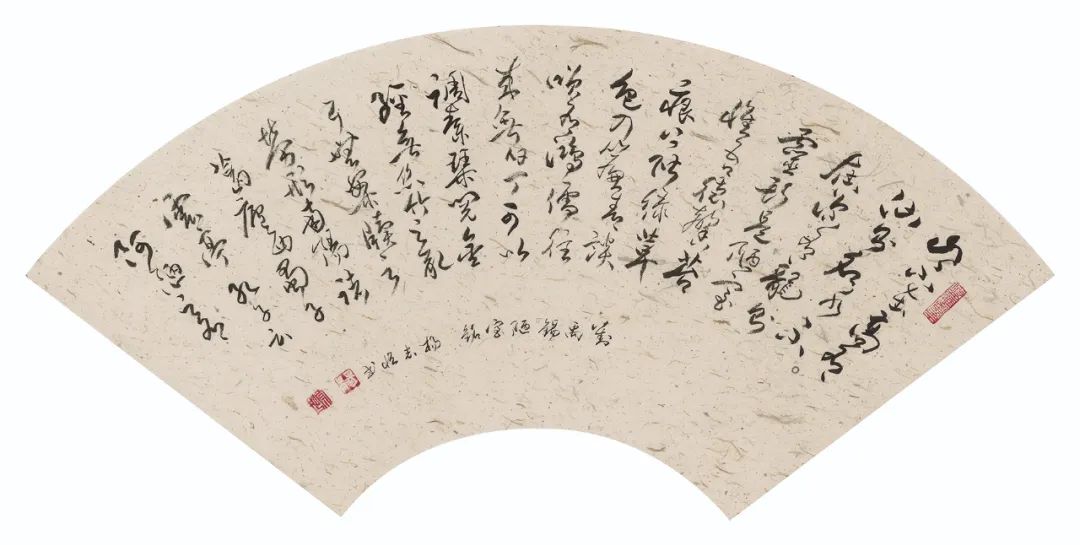 山不在高有
仙則名水不
在深有龍則
靈斯是陋室
惟吾德馨苔
痕上階綠草
色入簾青談
笑有鴻儒往
來無白丁可以
調素琴閱金
經無絲竹之亂
耳無案牘之
勞形南陽諸
葛廬西蜀子
雲亭孔子云
何陋之有
劉禹錫陋室銘 楊志書